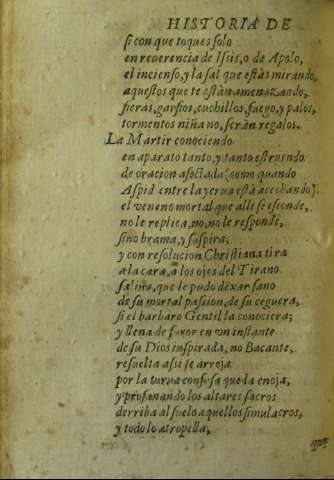 HISTORIA DE
si con que toques solo
en reuerencia de Isis, o de Apolo,
el incienso, y la sal que estàs mirando,
aquestos que te estàn amenazando,
fieras, garfios, cuchillos, fuego, y palos,
tormentos niña no, seràn regalos.
La Martir conociendo
en aparato tanto, y tanto estruendo
de oracion afectada (como quando
Aspid entre la yerua està acechando)
el veneno mortal que alli se esconde,
no le replica, no, no le responde,
sino brama, y suspira;
y con resolucion Christiana tira
a la cara, a los ojos del Tirano
saliua, que le pudo dexar sano
de su mortal passion, de su ceguera,
si el barbaro Gentil la conociera;
y llena de furor en vn instante
de su Dios inspirada, no Bacante,
resuelta assi se arroja
por la turba confusa que la enoja,
y profanando los altares sacros
derriba al suelo aquellos simulacros,
y todo lo atropella,
que